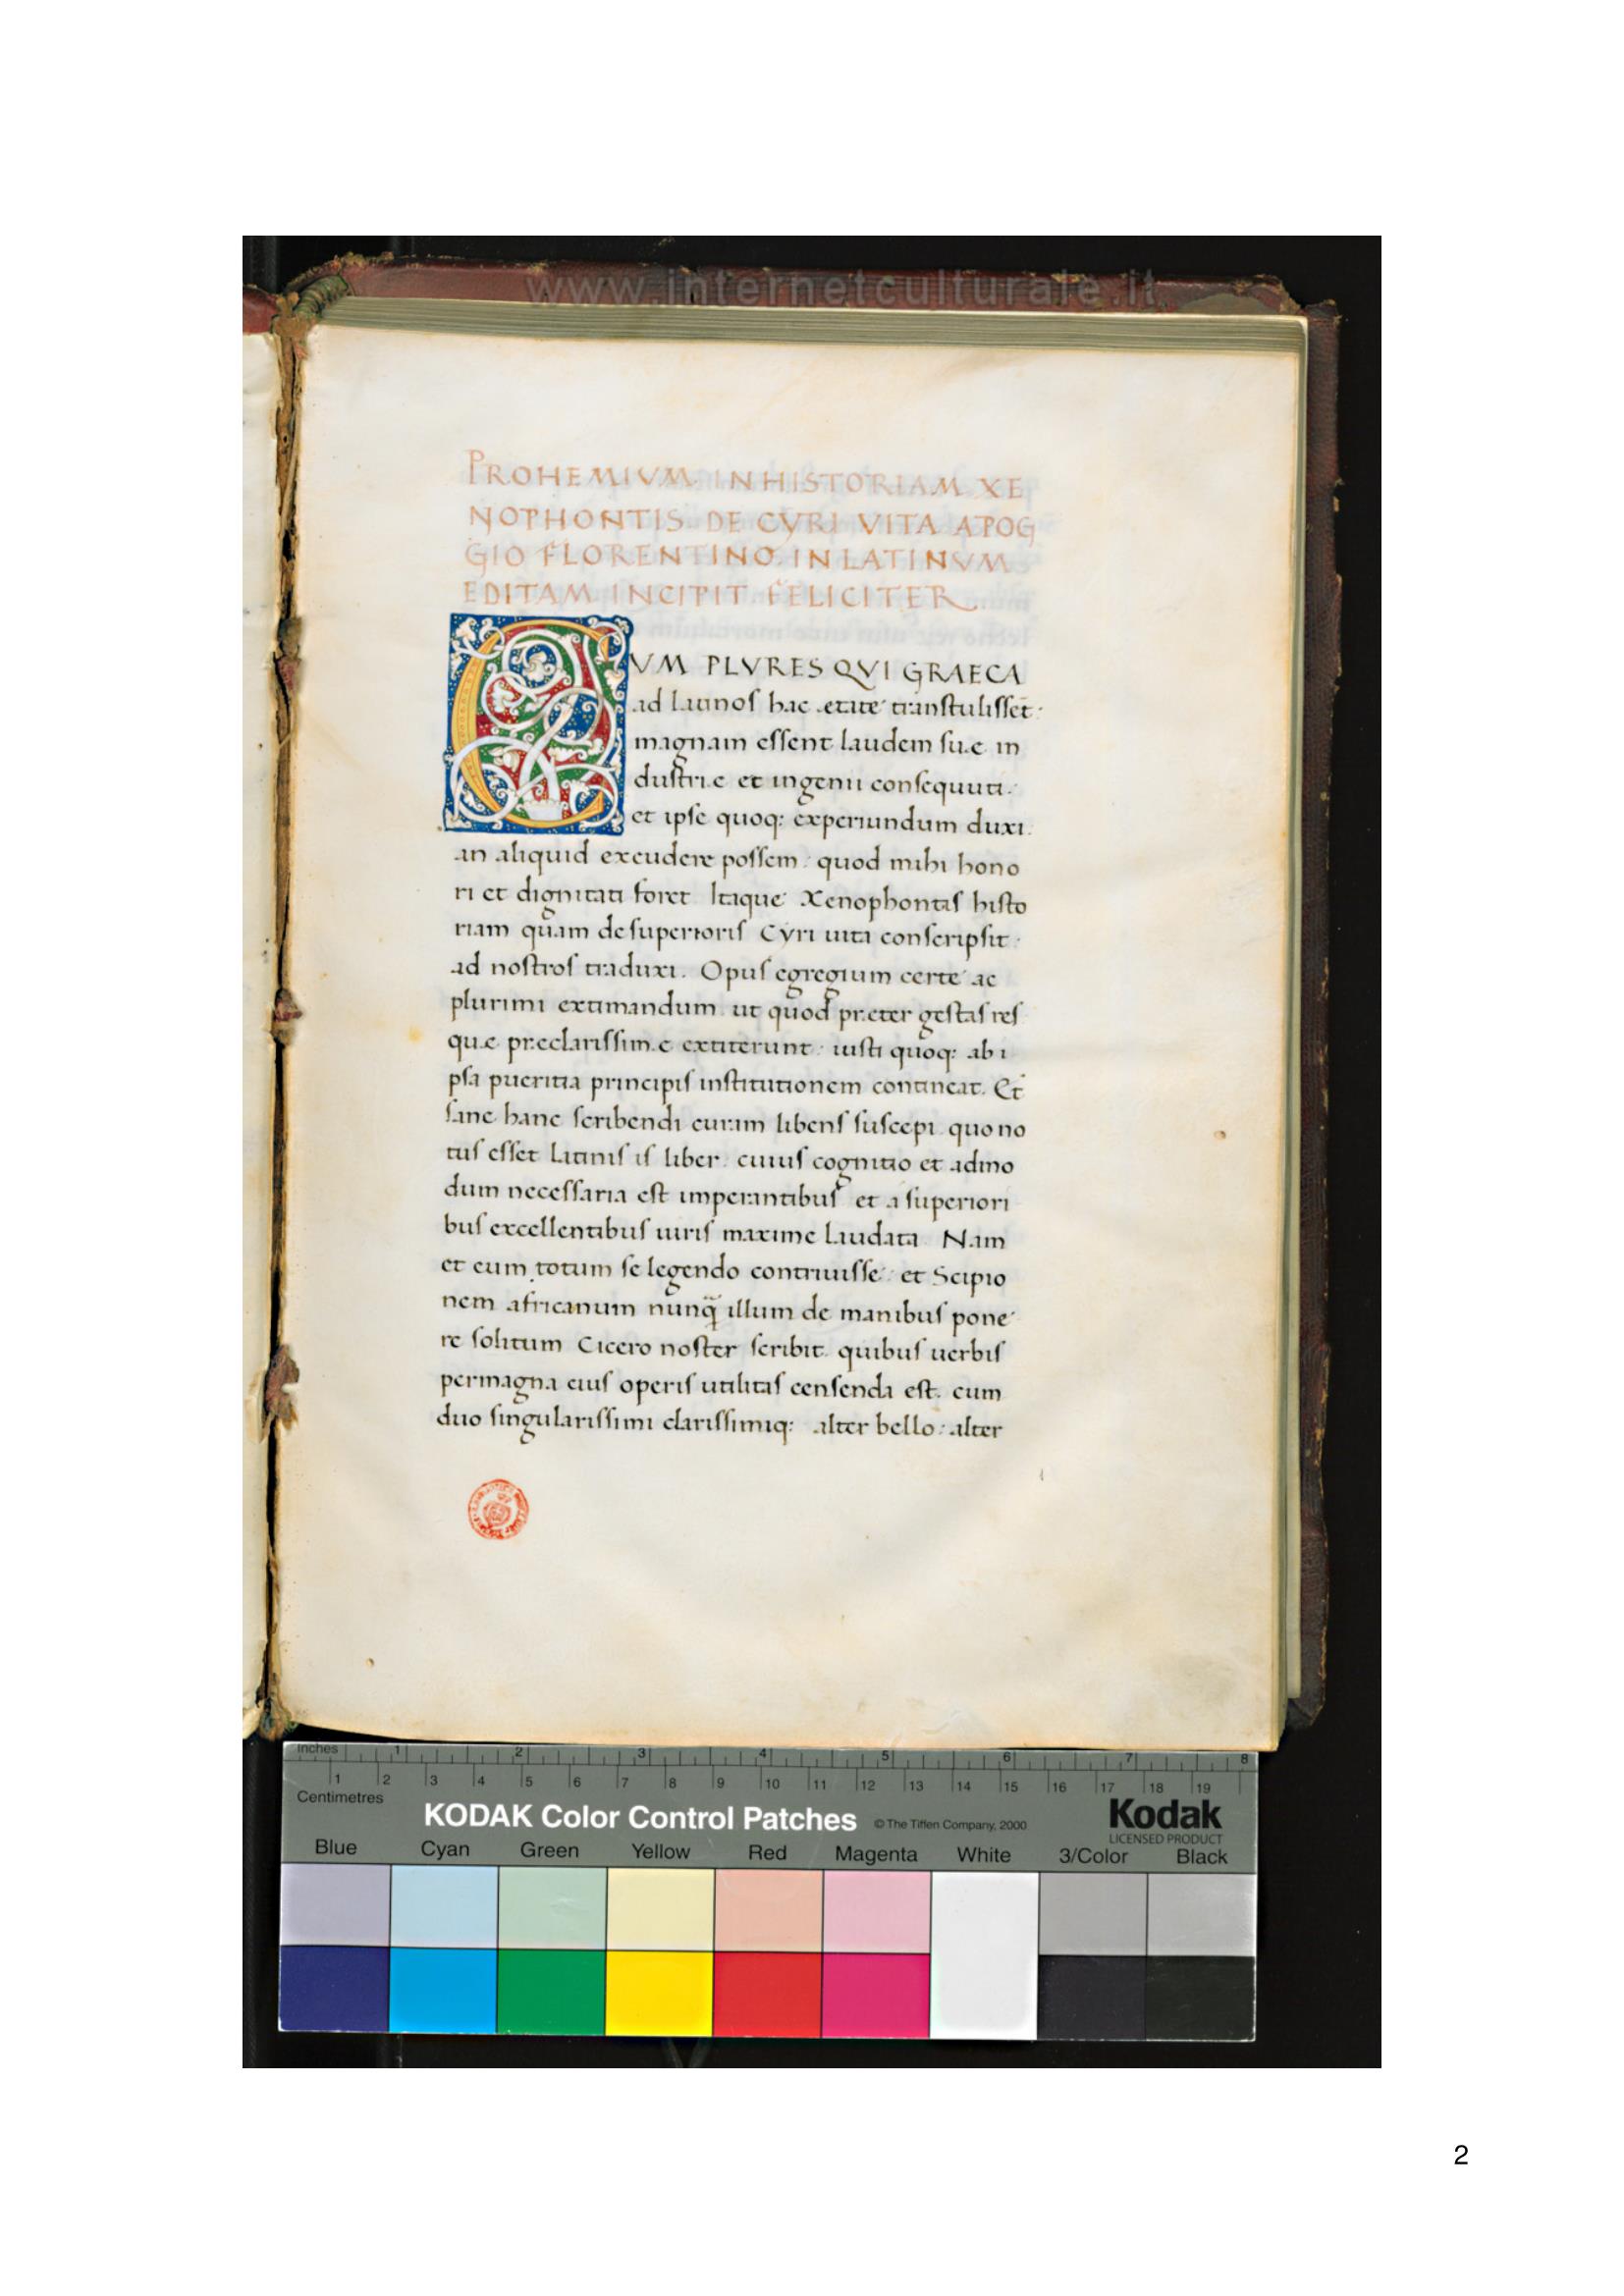 www.internetculturale.it
PROHEMIVM. IN HISTORIAM XE
NOPHONTIS. DE CYRI VITA APOG
GIO FLORENTINO. IN LATINVM
EDITAM. INCIPIT. FELICITER.
CVM PLVRES QVI GRAECA
ad latinos hac ætate transtulisset·
magnam essent laudem suæ in
dustriæ et ingenii consequuti.
et ipse quoq: experiundum duxi.
an aliquid excudere possem· quod mihi hono
ri et dignitati foret Itaque Xenophontis histo
riam quam de superioris Cyri uita conscripsit·
ad nostros traduxi. Opus egregium certe ac
plurimi extimandum. ut quod præter gestas res
quæ præclarissimæ extiterunt· iusti quoq: ab i
psa pueritia principis institutionem contineat. Et
sane hanc scribendi curam libens suscepi. quo no
tus esset latinis is liber. cuius cognitio et admo
dum necessaria est imperantibus et a superiori
bus excellentibus uiris maxime laudata. Nam
et eum totum se legendo contriuisse· et Scipio
nem africanum nunq̃ illum de manibus pone
re solitum Cicero noster scribit. quibus uerbis
permagna eius operis utilitas censenda est. cum
duo singularissimi clarissimiq: alter bello: alter
1
inches 1 2 3 4 5 6 7 8
1 2 3 4 5 6 7 8 9 10 11 12 13 14 15 16 17 18 19
Centimetres
KODAK Color Control Patches © The Tiffen Company, 2000 Kodak
LICENSED PRODUCT
Blue Cyan Green Yellow Red Magenta White 3/Color Black
2